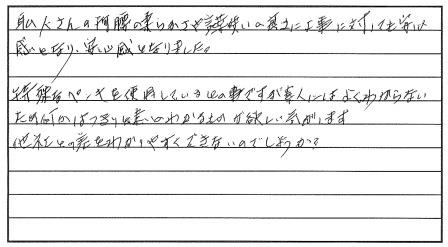 職人さんの物腰の柔らかさや言葉使いの良さに工事に対しても安心
感となり、安心感となりました。
特殊なペンキを使用しているとの事ですが素人にはよくわからない
ため何かはっきりと差のわかるものが欲しい気がします
他社との差をわかりやすくできないのでしょうか?